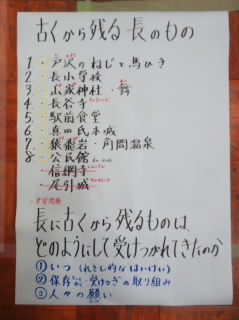 古くから残る長のもの
1.戸沢のねじと馬ひき
2.長小学校
3.山家神社・舞
4.長谷寺
5.駅前食堂
6.真田氏本城
7.猿飛岩・角間温泉
8.公民館
信綱寺
尾引城
・学習問題
長に古くから残るものは、
どのようにして受けつがれてきたのか
①いつ(れきし的なはいけい)
②保存・受けつぎの取り組み
③人々の願い